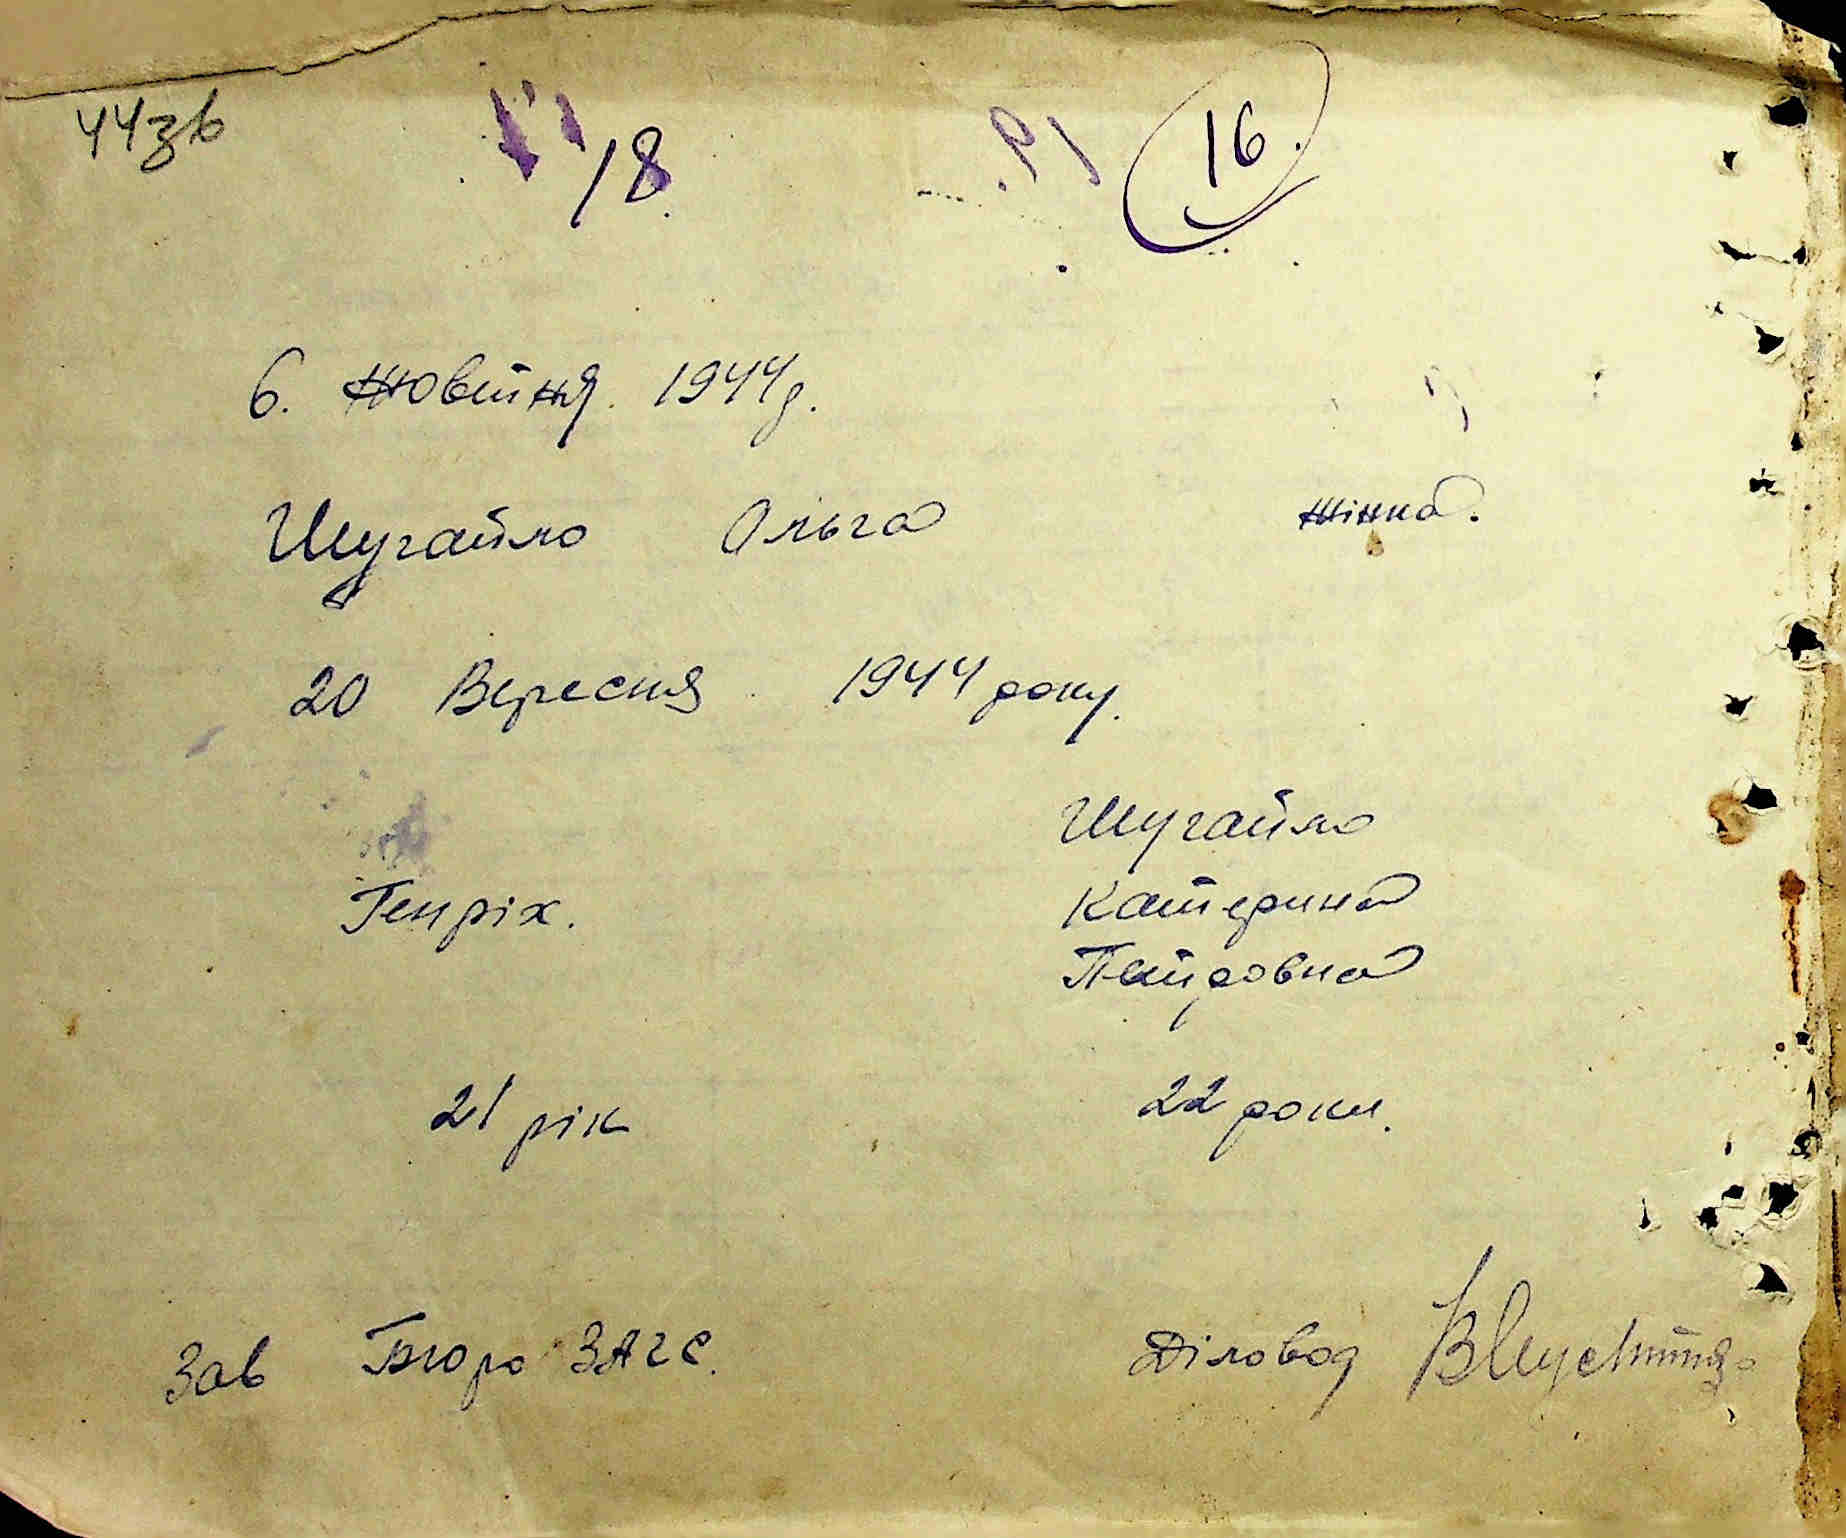 44зв
18.
16.
6. Жовтня 1944р.
Шугайло Ольга жінка.
20 Вересня 1944 року.
Шугайло
Генріх. Катерина
Петровна
21 рік 22 роки.
Зав Бюро ЗАГС. Діловод